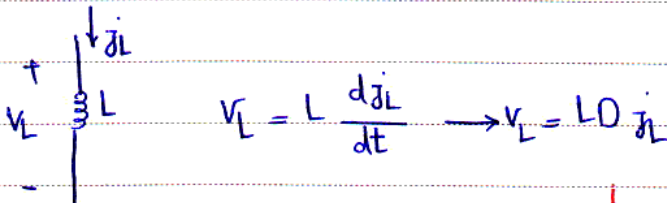 jL
+
VL L VL = L djL/dt → VL = LD jL
-